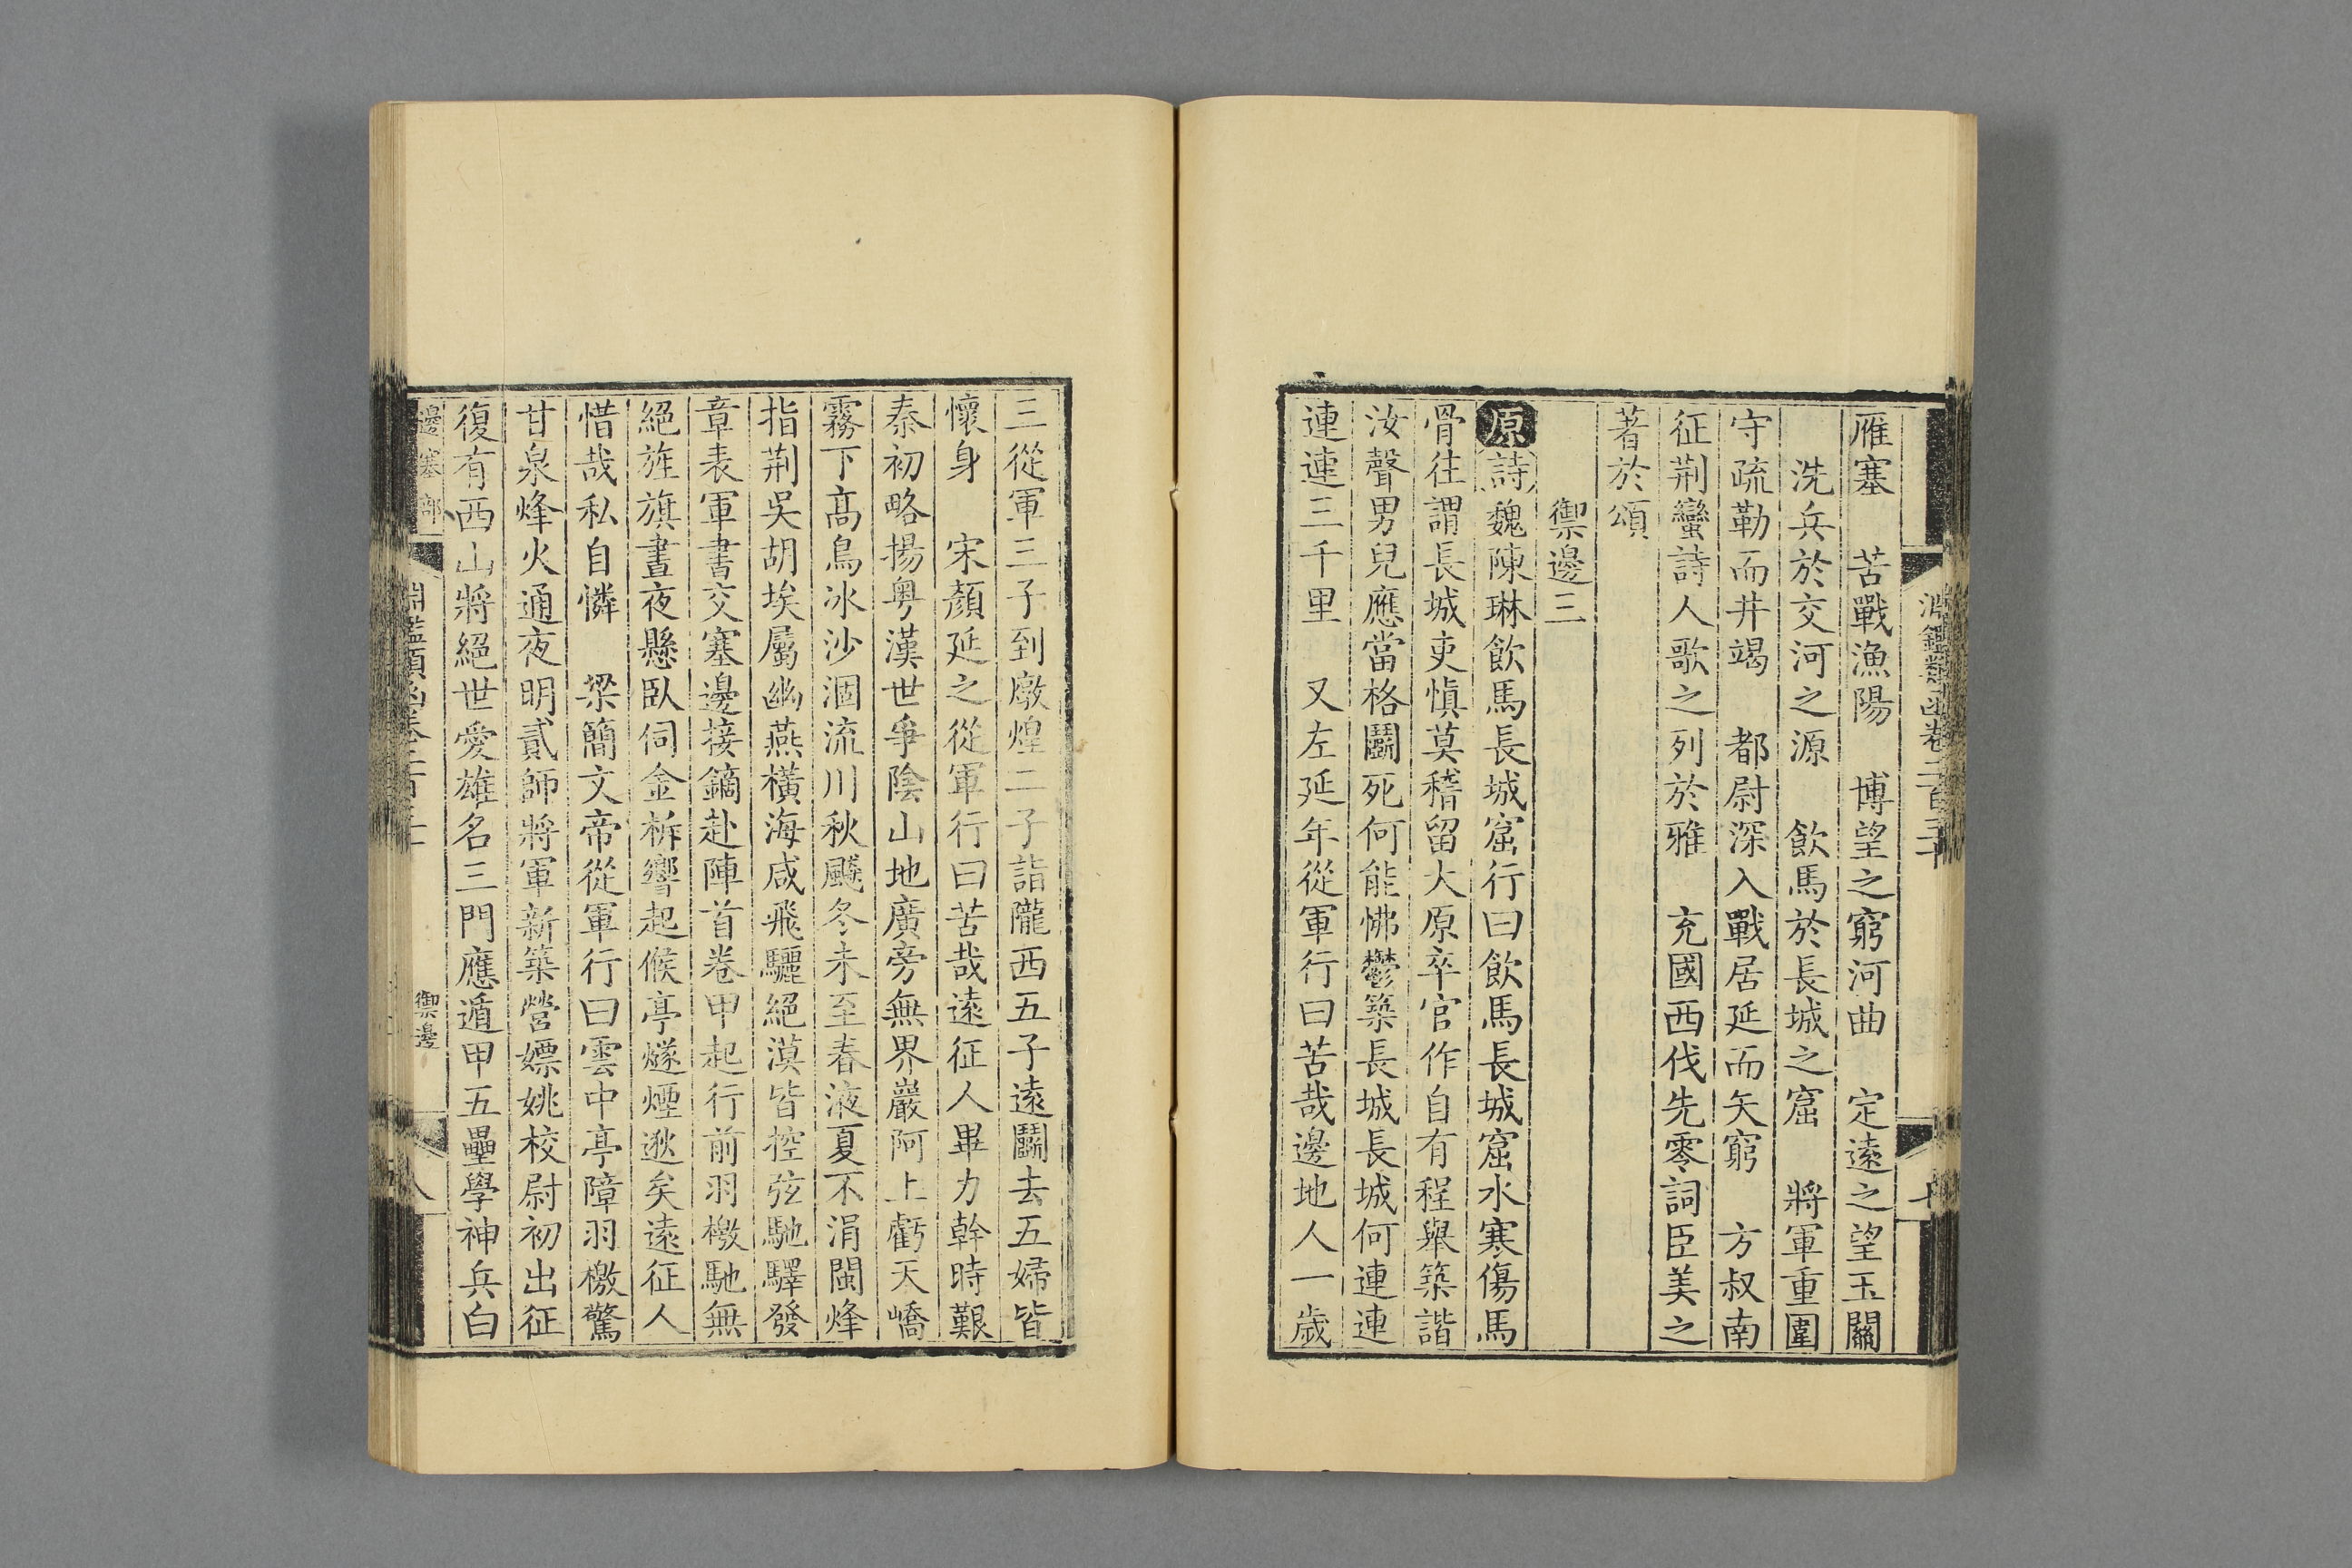 雁塞　苦戰漁陽　博望之窮河曲　定遠之望玉關
洗兵於交河之源　飲馬於長城之窟　將軍重圍
守疏勒而井竭　都尉深入戰居延而矢窮　方叔南
征荆蠻詩人歌之列於雅　充國西伐先零詞臣美之
著於頌
禦邊三
原詩魏陳琳飲馬長城窟行曰飲馬長城窟水寒傷馬
骨往謂長城吏愼莫稽留大原卒官作自有程舉築諧
汝聲男兒應當格鬭死何能怫鬱築長城長城何連連
連連三千里　又左延年從軍行曰苦哉邊地人一歲
三從軍三子到燉煌二子詣隴西五子遠鬭去五婦皆
懷身　宋顏延之從軍行曰苦哉遠征人畢力幹時艱
秦初略揚粤漢世爭陰山地廣旁無界巖阿上虧天嶠
霧下高鳥冰沙涸流川秋飈冬未至春液夏不涓閩烽
指荆吳胡埃屬幽燕橫海咸飛驪絕漠皆控弦馳驛發
章表軍書交塞邊接鏑赴陣首卷甲起行前羽檄馳無
絕旌旗晝夜懸臥伺金柝響起候亭燧煙逖矣遠征人
惜哉私自憐　梁簡文帝從軍行曰雲中亭障羽檄驚
甘泉烽火通夜明貳師將軍新築營嫖姚校尉初出征
復有西山將絕世愛雄名三門應遁甲五壘學神兵白
邊塞部
禦邊
八